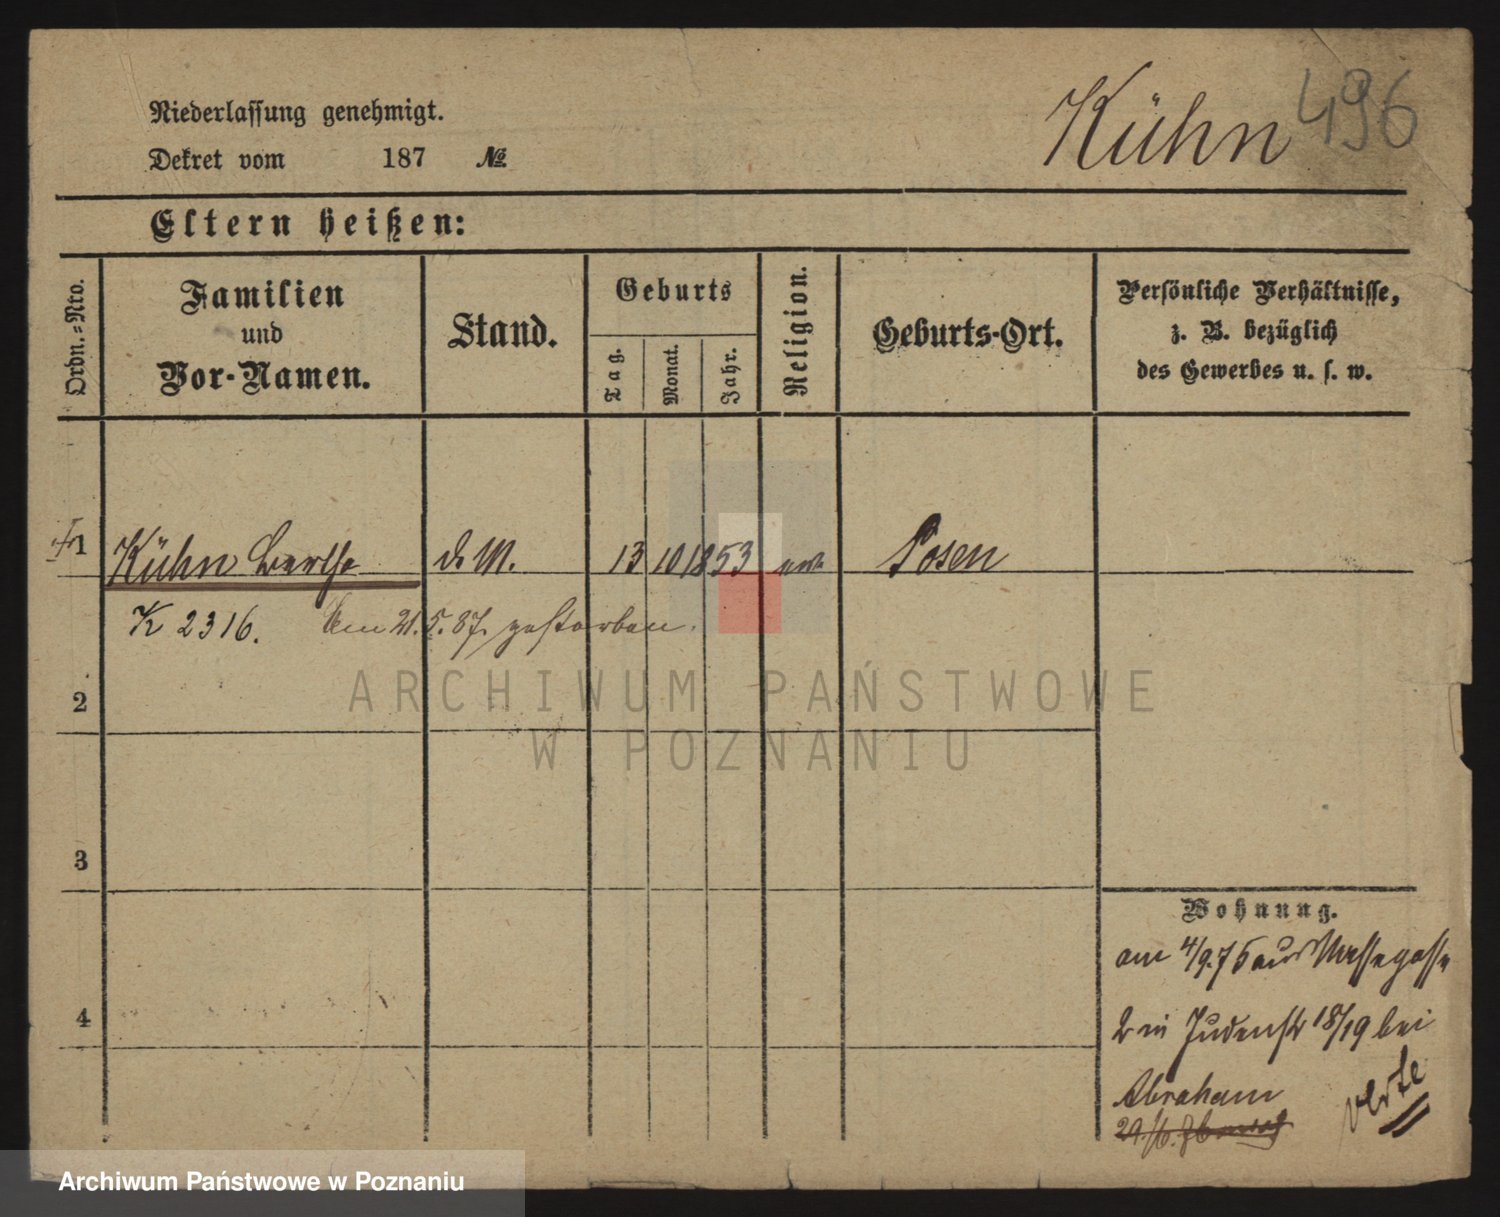 Kühn 496
Niederlassung genehmigt.
Dekret vom 187 №
Eltern heißen:
Ordn.-Nro.
Familien
und
Vor-Namen.
Stand.
Geburts
Tag.
Monat.
Jahr.
Religion.
Geburts-Ort.
Persönliche Verhältnisse,
z. B. bezüglich
des Gewerbes u. s. w.
1 Kühn Bertha d. M. 13 10 1853 Posen
K 2316. Am 21.5.87. gestorben.
2
3
4
Wohnung.
am 4/9.75 aus
2 in Judenstr 18/19 bei
Abraham
verte
ARCHIWUM PAŃSTWOWE
W POZNANIU
Archiwum Państwowe w Poznaniu